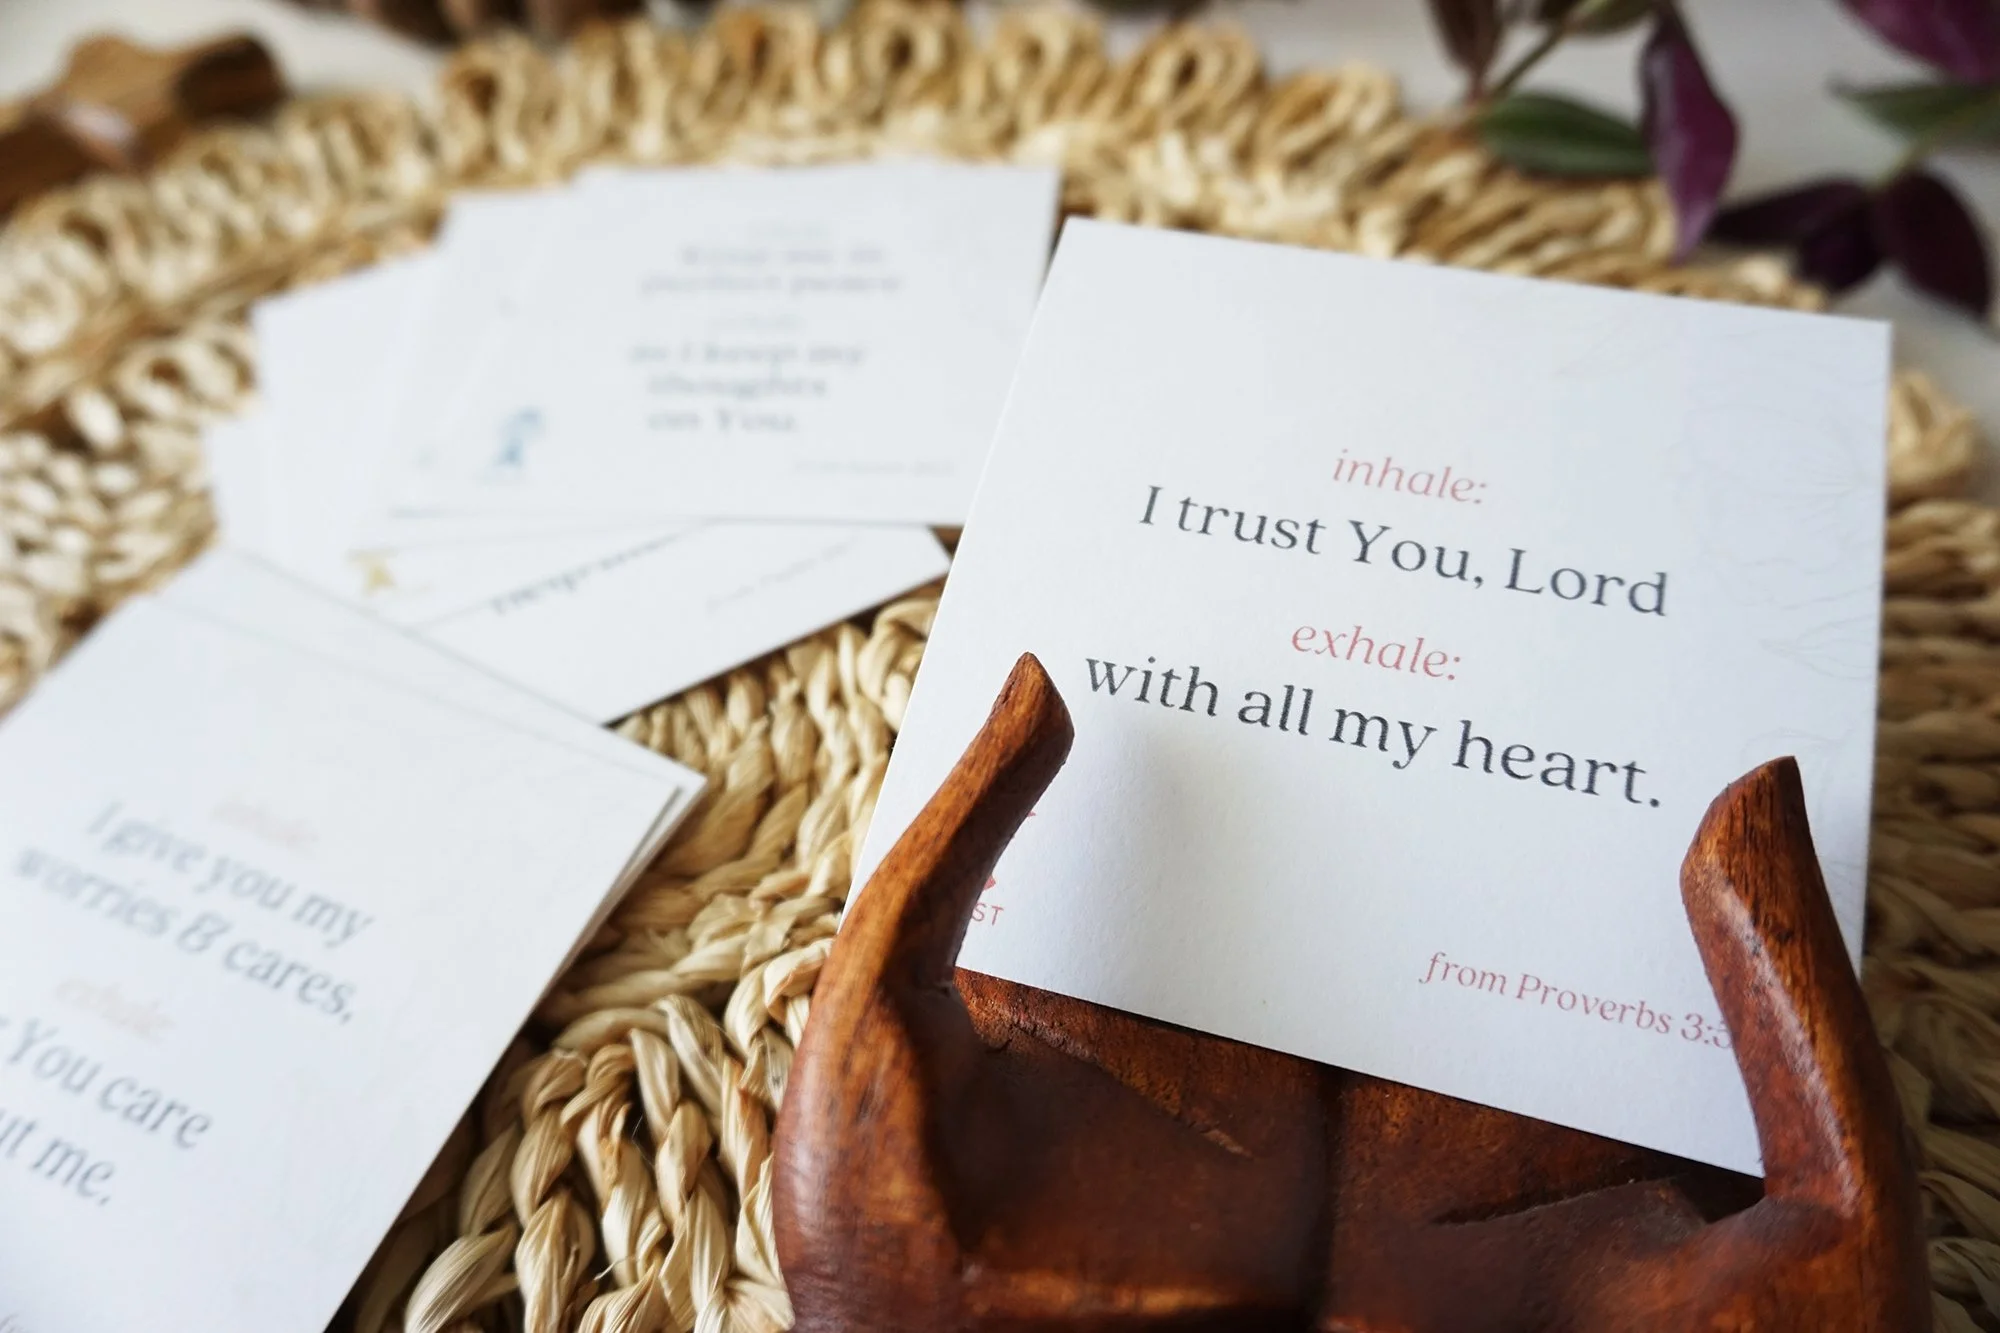 inhale:
I trust You, Lord
exhale:
with all my heart.
ST
from Proverbs 3:5
Keep me in
perfect peace
as I keep my
thoughts
on You.
inhale:
I give you my
worries & cares,
exhale:
You care
me.